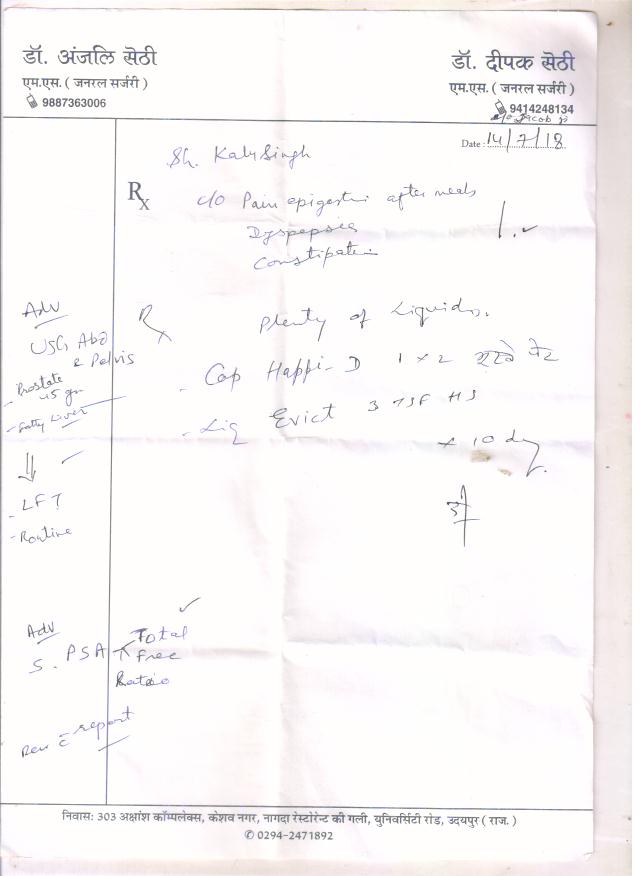 डॉ. अंजलि सेठी
एम.एस. ( जनरल सर्जरी )
9887363006
डॉ. दीपक सेठी
एम.एस. ( जनरल सर्जरी )
9414248134
Date : 14/7/18
Sh. Kalu Singh
Rx
c/o Pain epigastri after meals
Dyspepsia
Constipation
Adv
USG Abd
& Pelvis
- Prostate
45 gm
- Fatty Liver
- LFT
- Routine
Rx
Plenty of Liquids.
- Cap Happi-D 1 x 2
- Liq Evict 3 TSF HS
x 10 day
Adv
S. PSA
Total
Free
Ratio
Rev c report
निवास: 303 अक्षांश कॉम्पलेक्स, केशव नगर, नागदा रेस्टोरेन्ट की गली, युनिवर्सिटी रोड, उदयपुर ( राज. )
✆ 0294-2471892